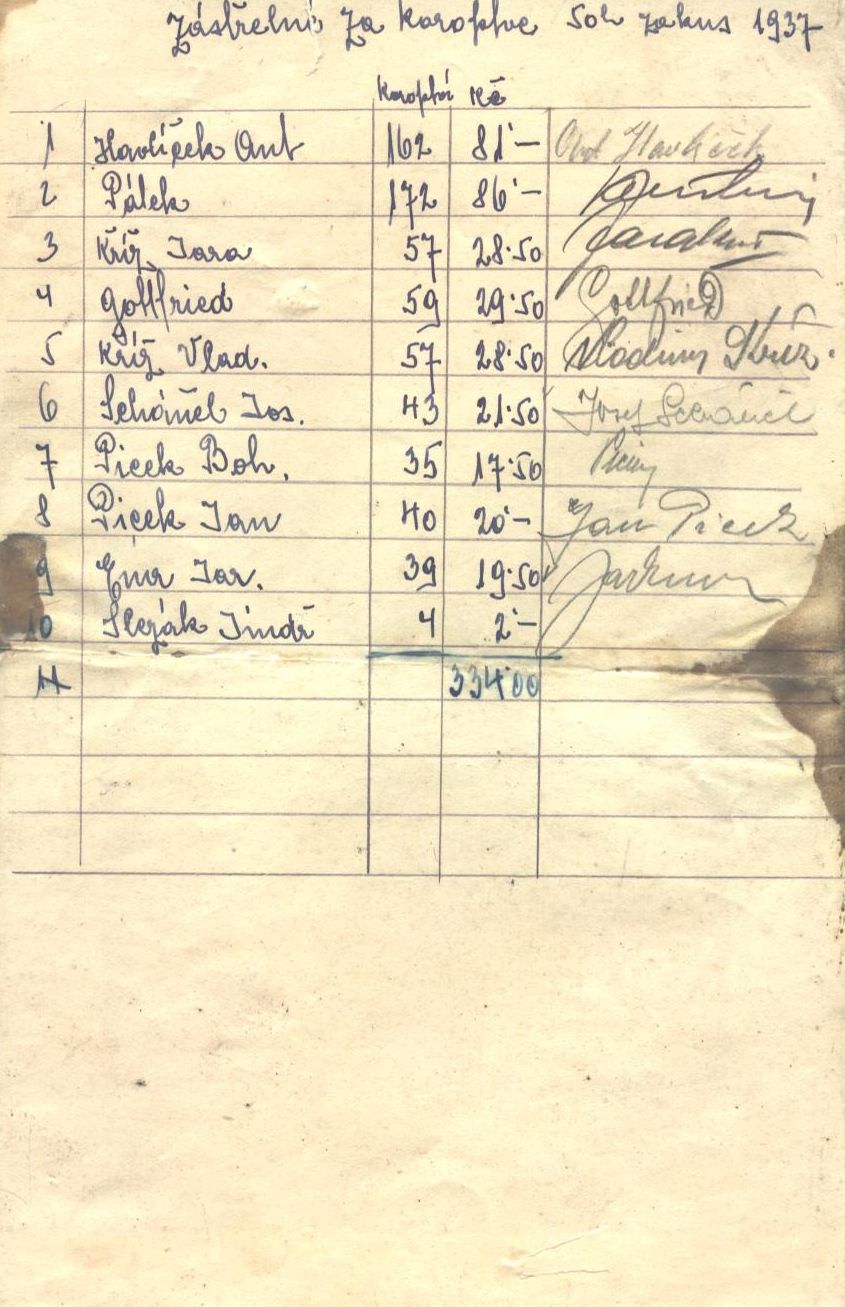 Zástřelné za koroptve 50h za kus 1937
Koroptví Kč
1 Havlíček Ant 162 81·— Ant Havlíček
2 Pálek 172 86·—
3 Kříž Jara 57 28·50
4 Gottfried 59 29·50 Gottfried
5 Kříž Vlad. 57 28·50 Vladimír Kříž.
6 Scháněl Jos. 43 21·50 Josef Scháněl
7 Picek Boh. 35 17·50
8 Picek Jan 40 20·— Jan Picek
9 Jar. 39 19·50
10 Slezák Jindř 4 2·—
11 334·00